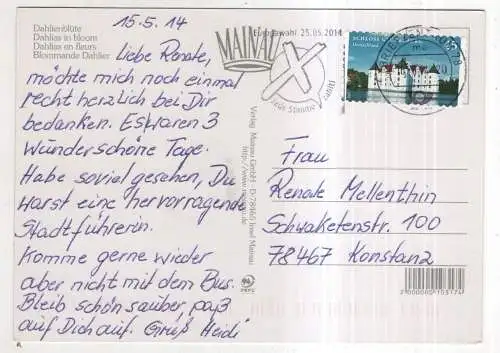 15.5.14
Dahlienblüte
Dahlias in bloom
Dahlias en fleurs
Blommande Dahlier
Liebe Renate,
möchte mich noch einmal
recht herzlich bei Dir
bedanken. Es waren 3
wunderschöne Tage.
Habe soviel gesehen, Du
warst eine hervorragende
Stadtführerin.
Komme gerne wieder
aber nicht mit dem Bus.
Bleib schön sauber, paß
auf Dich auf. Gruß Heidi
MAINAU
Europawahl 25.05.2014
Jede Stimme zählt!
SCHLOSS
Deutschland
45
Verlag: Mainau GmbH · D-78465 Insel Mainau
http://www.mainau.de
Frau
Renate Mellenthin
Schwaketenstr. 100
78467 Konstanz
2 000000 103174